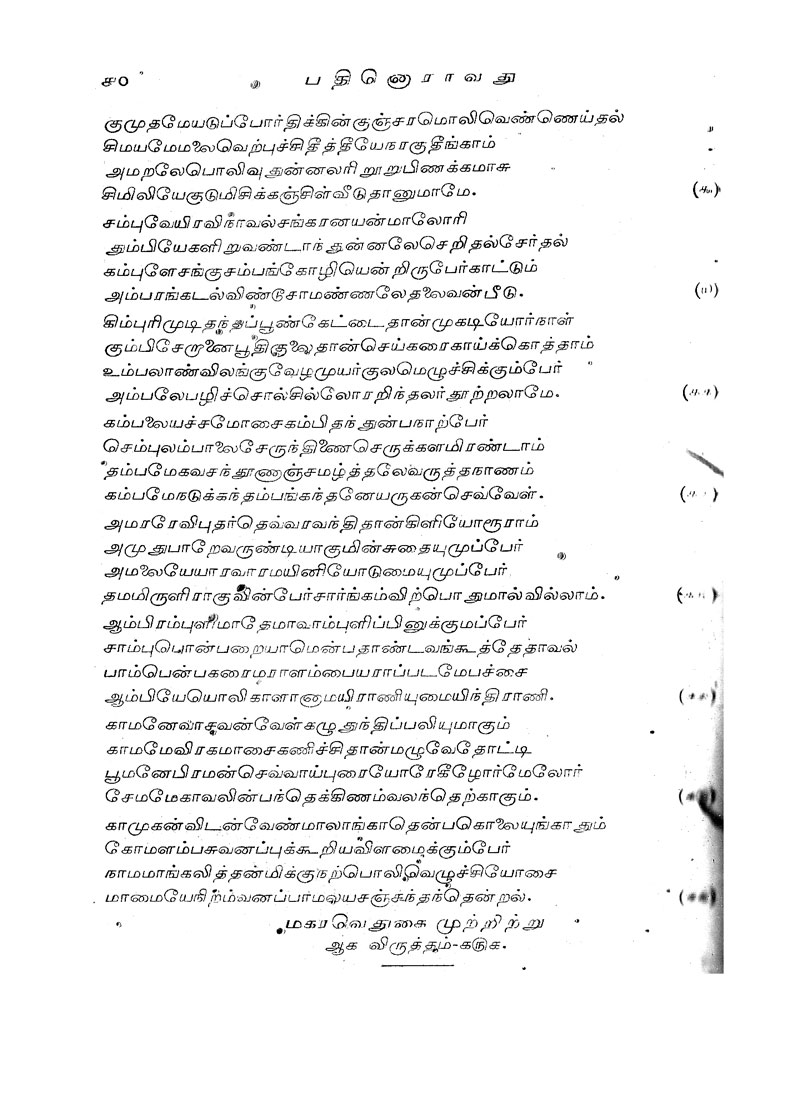 ௪௦ பதினொராவது
குமுதமேயடுப்போர்திக்கின்குஞ்சரமொலிவெண்ணெய்தல்
சிமயமேமலைவெற்புச்சிதீத்தீயேநரகுதீங்காம்
அமறலேபொலிவுதுன்னலரிறூறுபிணக்கமாசு
சிமிலியேகுடுமிசிக்கஞ்சிள்வீடுதானுமாமே.
சம்புவேயிரவிநாவல்சங்கரனயன்மாலோரி
தும்பியேகளிறுவண்டாந்துன்னலேசெறிதல்சேர்தல்
கம்புளேசங்குசம்பங்கோழியென்றிருபேர்காட்டும்
அம்பரங்கடல்விண்டூசாமண்ணலேதலைவன்பீடு.
கிம்புரிமுடிதந்துப்பூண்கேட்டைதான்முகடியோர்நாள்
கும்பிசேறானைபூதிகுலைதான்செய்கரைகாய்க்கொத்தாம்
உம்பலாண்விலங்குவேழமுயர்குலமெழுச்சிக்கும்பேர்
அம்பலேபழிச்சொல்சில்லோரறிந்தலர்தூற்றலாமே.
கம்பலையச்சமோசைகம்பிதந்துன்பநாற்பேர்
செம்புலம்பாலைசேருந்திணைசெருக்களமிரண்டாம்
தம்பமேகவசந்தூணஞ்சமழ்த்தலேவருத்தநாணம்
கம்பமேநடுக்கந்தம்பங்கந்தனேயருகன்செவ்வேள்.
அமரரேவிபுதர்தெவ்வரவந்திதான்கிளியோரூராம்
அமுதுபாறேவருண்டியாகுமின்சுதையுமுப்பேர்
அமலையேயாரவாரமயினியோடுமையுமுப்பேர்
தமமிருளிராகுவின்பேர்சார்ங்கம்விற்பொதுமால்வில்லாம்.
ஆம்பிரம்புளிமாதேமாவாம்புளிப்பினுக்குமப்பேர்
சாம்புபொன்பறையாமென்பதாண்டவங்கூத்தேதாவல்
பாம்பென்பகரைமராளம்பையராப்படமேபச்சை
ஆம்பியேயொலிகாளாஞமயிராணியுமையிந்திராணி.
காமனேவாசவன்வேள்கழுதுந்திப்பலியுமாகும்
காமமேவிரகமாசைகணிச்சிதான்மழுவேதோட்டி
பூமனேபிரமன்செவ்வாய்புரையோரேகீழோர்மேலோர்
சேமமேகாவலின்பந்தெக்கிணம்வலந்தெற்காகும்.
காமுகன்விடன்வேண்மாலாங்காதென்பகொலையுங்காதும்
கோமளம்பசுவனப்புக்கூறியவிளமைக்கும்பேர்
நாமமாங்கலித்தன்மிக்குநற்பொலிவெழுச்சியோசை
மாமையேநிறம்வனப்பாமலயசஞ்சந்தந்தென்றல்.
மகரவெதுகை முற்றிற்று
ஆக விருத்தம்-கரு௬.